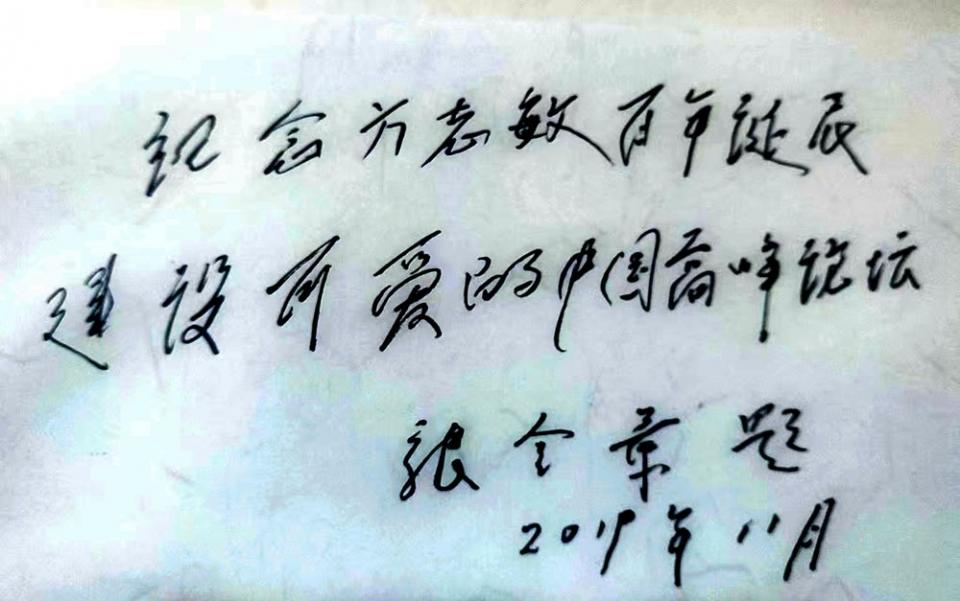 纪念方志敏百年诞辰
建设可爱的中国高峰论坛
张全景题
2019年11月